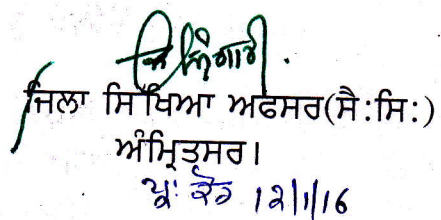 ਜਿਲਾ ਸਿੱਖਿਆ ਅਫਸਰ(ਸੈ:ਸਿ:)
ਅੰਮ੍ਰਿਤਸਰ।
12/1/16